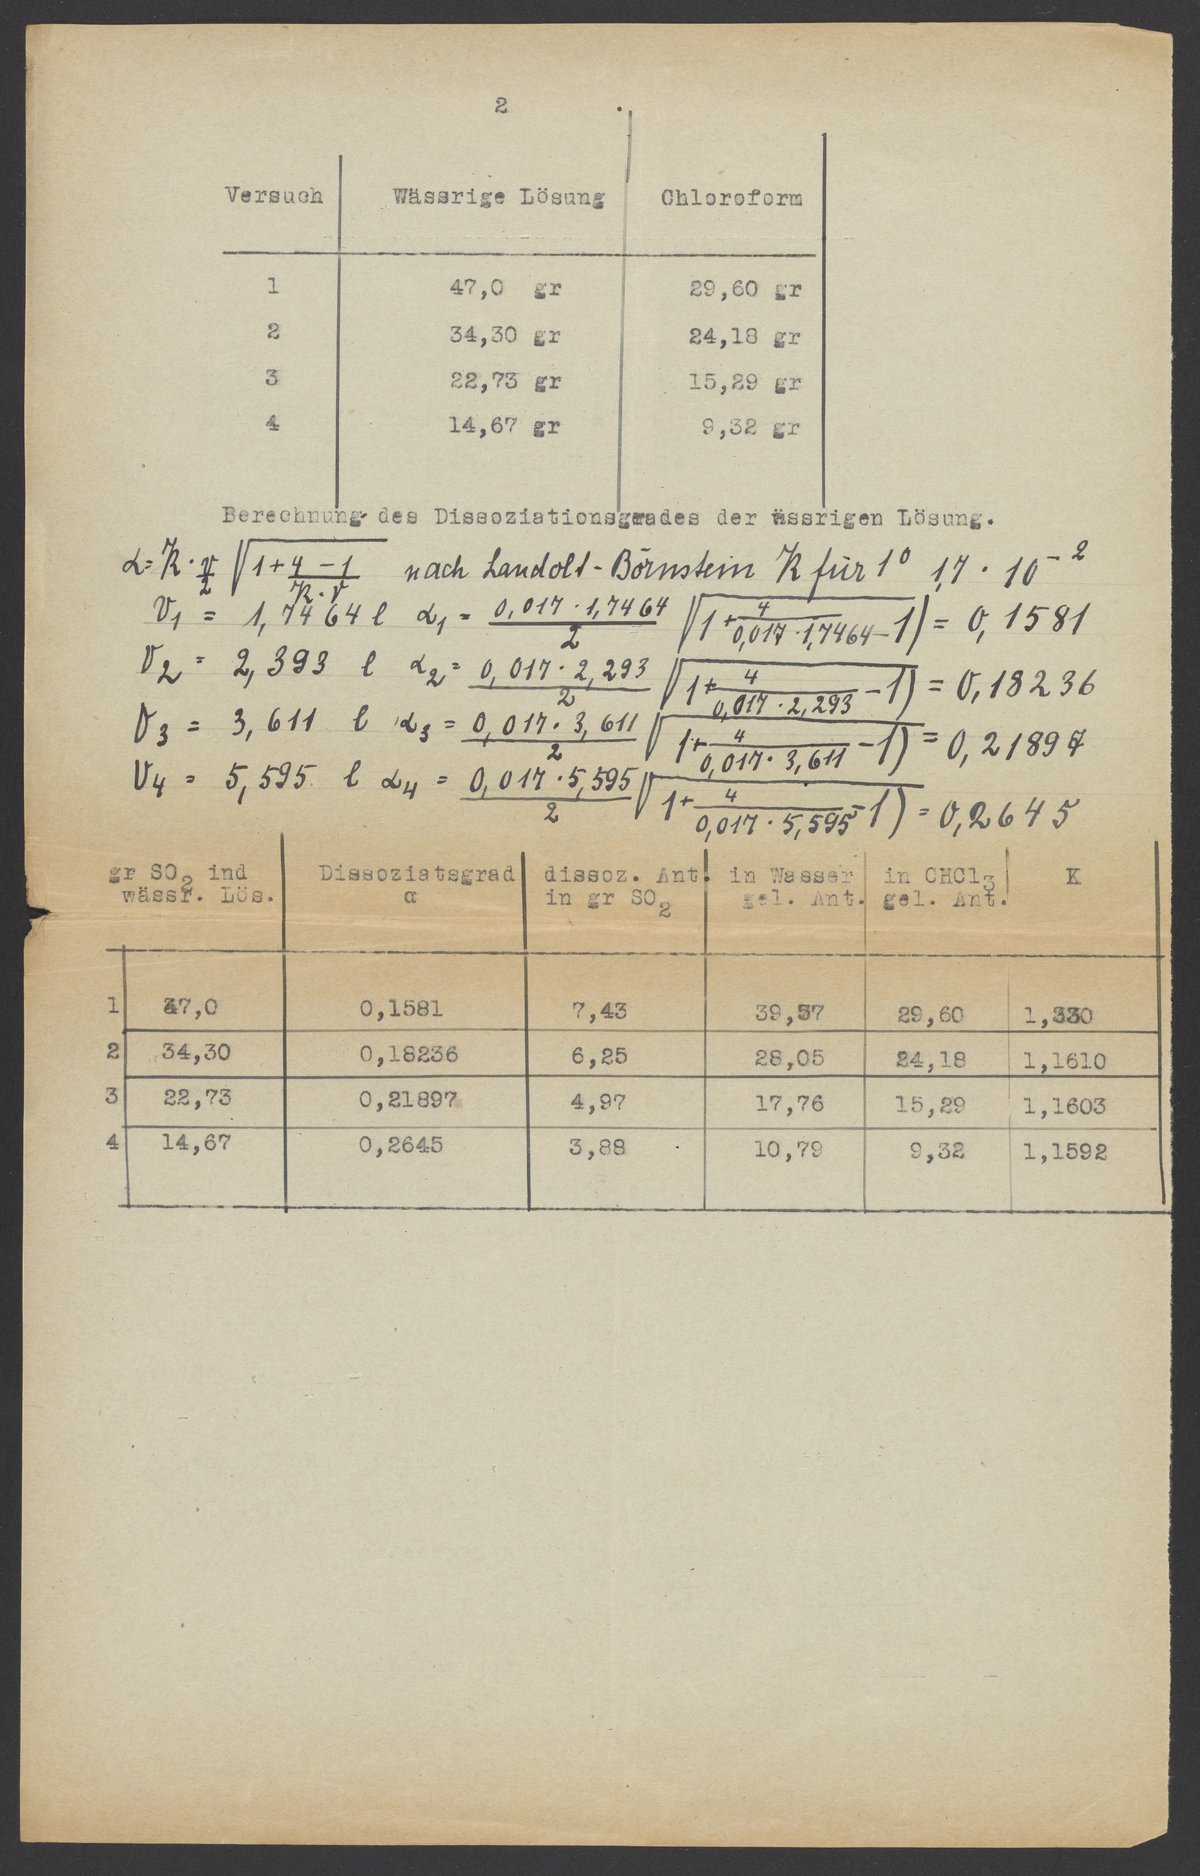 2
Versuch Wässrige Lösung Chloroform
1 47,0 gr 29,60 gr
2 34,30 gr 24,18 gr
3 22,73 gr 15,29 gr
4 14,67 gr 9,32 gr
Berechnung des Dissoziationsgrades der ässrigen Lösung.
α = K · v/2 √(1 + 4/(K · v) − 1 nach Landolt-Börnstein K für 1° 1,7 · 10⁻²
V₁ = 1,7464 l α₁ = 0,017 · 1,7464/2 √(1 + 4/(0,017 · 1,7464) − 1) = 0,1581
V₂ = 2,393 l α₂ = 0,017 · 2,293/2 √(1 + 4/(0,017 · 2,293) − 1) = 0,18236
V₃ = 3,611 l α₃ = 0,017 · 3,611/2 √(1 + 4/(0,017 · 3,611) − 1) = 0,21897
V₄ = 5,595 l α₄ = 0,017 · 5,595/2 √(1 + 4/(0,017 · 5,595) − 1) = 0,2645
gr SO₂ ind Dissoziatsgrad dissoz. Ant. in Wasser in CHCl₃ K
wässr. Lös. α in gr SO₂ gel. Ant. gel. Ant.
1 47,0 0,1581 7,43 39,57 29,60
2 34,30 0,18236 6,25 28,05 24,18 1,1610
3 22,73 0,21897 4,97 17,76 15,29 1,1603
4 14,67 0,2645 3,88 10,79 9,32 1,1592